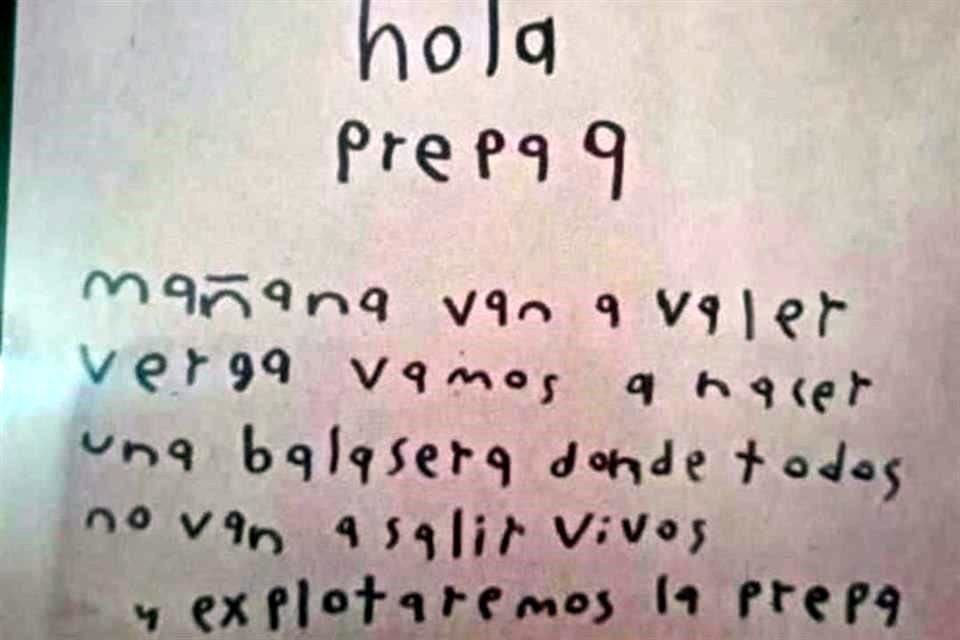 hola
prepa 9
mañana van a valer
verga vamos a hacer
una balasera donde todos
no van a salir vivos
y explotaremos la prepa